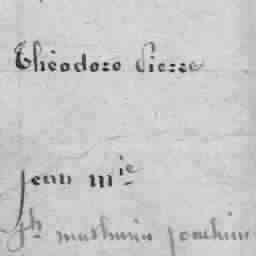 Théodore Pierre
jean m.ie
jh mathurin joachim